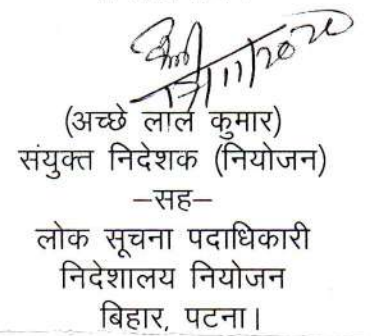 (अच्छे लाल कुमार)
संयुक्त निदेशक (नियोजन)
–सह–
लोक सूचना पदाधिकारी
निदेशालय नियोजन
बिहार, पटना।